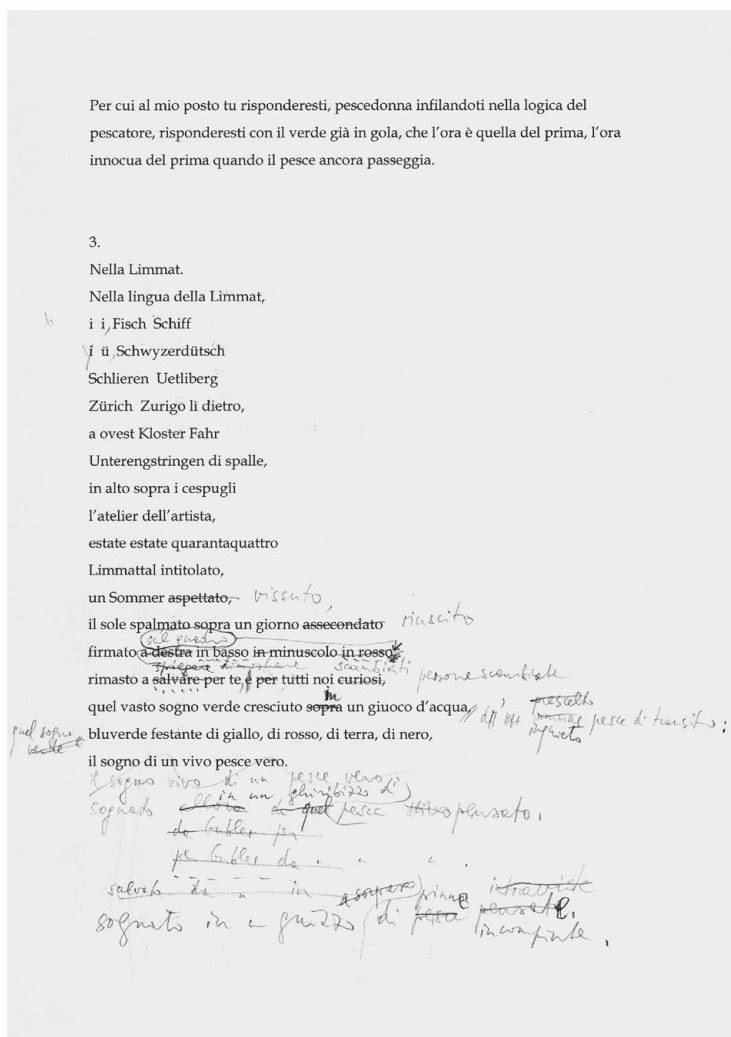 Per cui al mio posto tu risponderesti, pescedonna infilandoti nella logica del
pescatore, risponderesti con il verde già in gola, che l'ora è quella del prima, l'ora
innocua del prima quando il pesce ancora passeggia.
3.
Nella Limmat.
Nella lingua della Limmat,
b i i, Fisch Schiff
i ü, Schwyzerdütsch
Schlieren Uetliberg
Zürich Zurigo lì dietro,
a ovest Kloster Fahr
Unterengstringen di spalle,
in alto sopra i cespugli
l'atelier dell'artista,
estate estate quarantaquattro
Limmattal intitolato,
un Sommer aspettato, vissuto,
il sole spalmato sopra un giorno assecondato riuscito
sul quadro
firmato a destra in basso in minuscolo in rosso
spiegare dimostrare scambiati
rimasto a salvare per te, e per tutti noi curiosi, persone scambiate
in prescelto
quel vasto sogno verde cresciuto sopra un giuoco d'acqua, pesce di transito:
inquieto
quel sogno
verde e
bluverde festante di giallo, di rosso, di terra, di nero,
il sogno di un vivo pesce vero.
il sogno vivo di un pesce vero
in un ghiribizzo di
sognato quel pesce pensato.
da
da
salvato da in pinne intraviste
sognato in guizzo di pesce pensate.
incompiute.